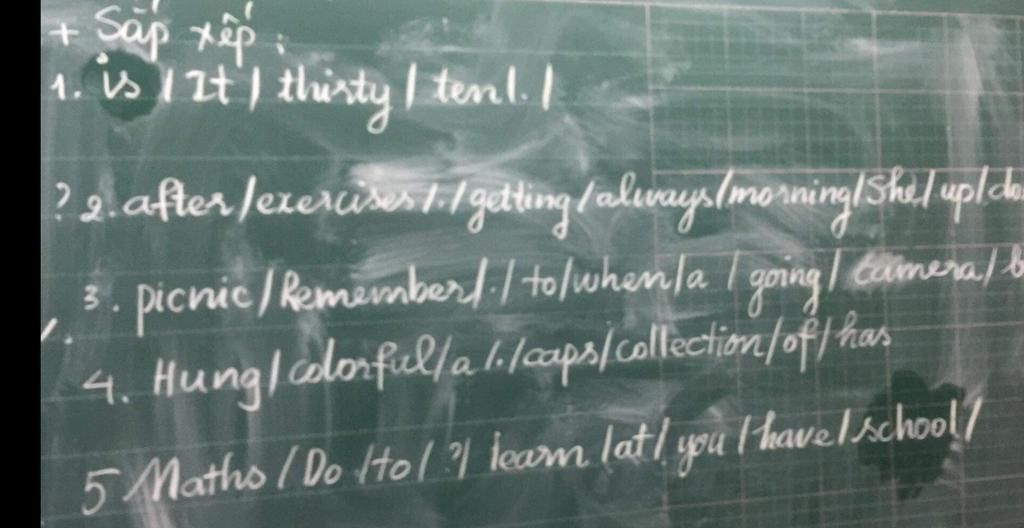 + Sắp xếp:
1. is / It / thirty / ten / . /
? 2. after / exercises / . / getting / always / morning / She / up / do
3. picnic / Remember / . / to / when / a / going / camera /
4. Hung / colorful / a / . / caps / collection / of / has
5 Maths / Do / to / ? / learn / at / you / have / school /